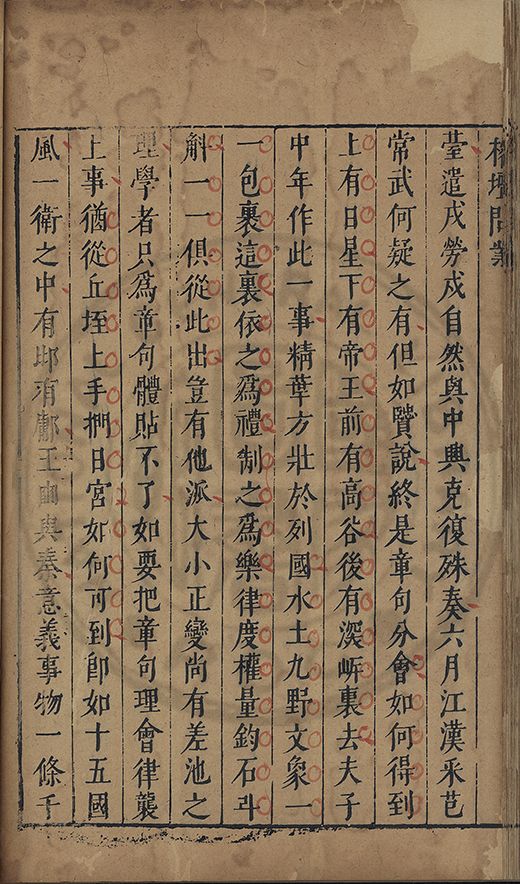 榕壇問業
薹遣戍勞戍自然與中興克復殊奏六月江漢采芑
常武何疑之有但如賢說終是章句分會如何得到
上有日星下有帝王前有高谷後有深㟁裏去夫子
中年作此一事精華方壯於列國水土九野文象一
一包裹這裏依之爲禮制之爲樂律度權量鈞石斗
斛一一俱從此出豈有他派大小正變尚有差池之
理學者只爲章句體貼不了如要把章句理會律襲
上事猶從丘垤上手捫日宮如何可到卽如十五國
風一衛之中有邶有鄘王豳與秦意義事物一條千